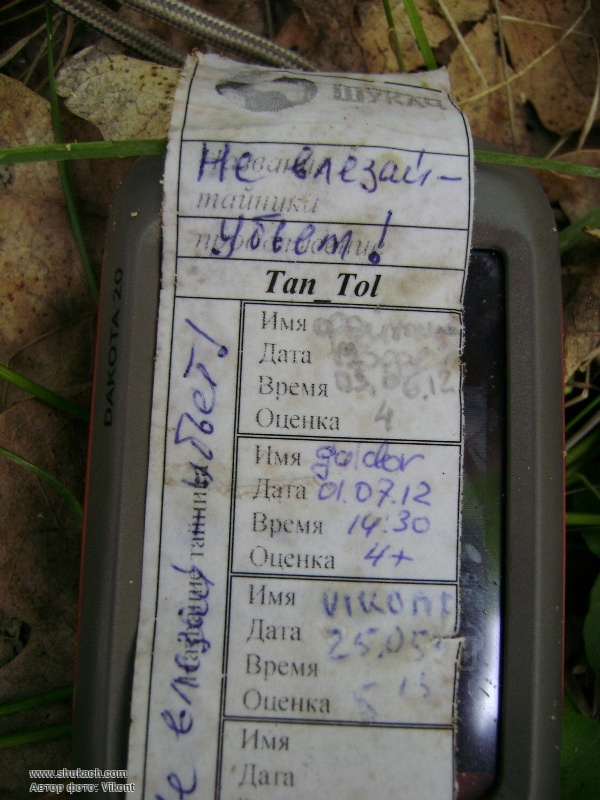 ШУКАЧ
Название
Не влезай-
тайника
убьет!
Tan_Tol
Имя
Дата
Время 03.06.12
Оценка 4
Имя goldor
Дата 01.07.12
Время 14:30
Оценка 4+
Имя vikont
Дата 25.05
Время
Оценка 5
Имя
Дата
Название тайника
Не влезай убьет!
DAKOTA 20
www.shukach.com
Автор фото: Vikont